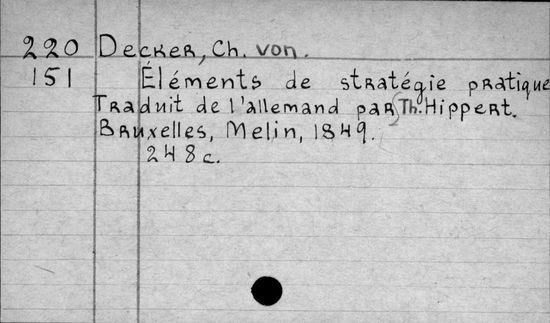 220 Decker, Ch. von.
151 Éléments de stratégie pratique
Traduit de l'allemand par Th. Hippert.
Bruxelles, Melin, 1849.
248 c.